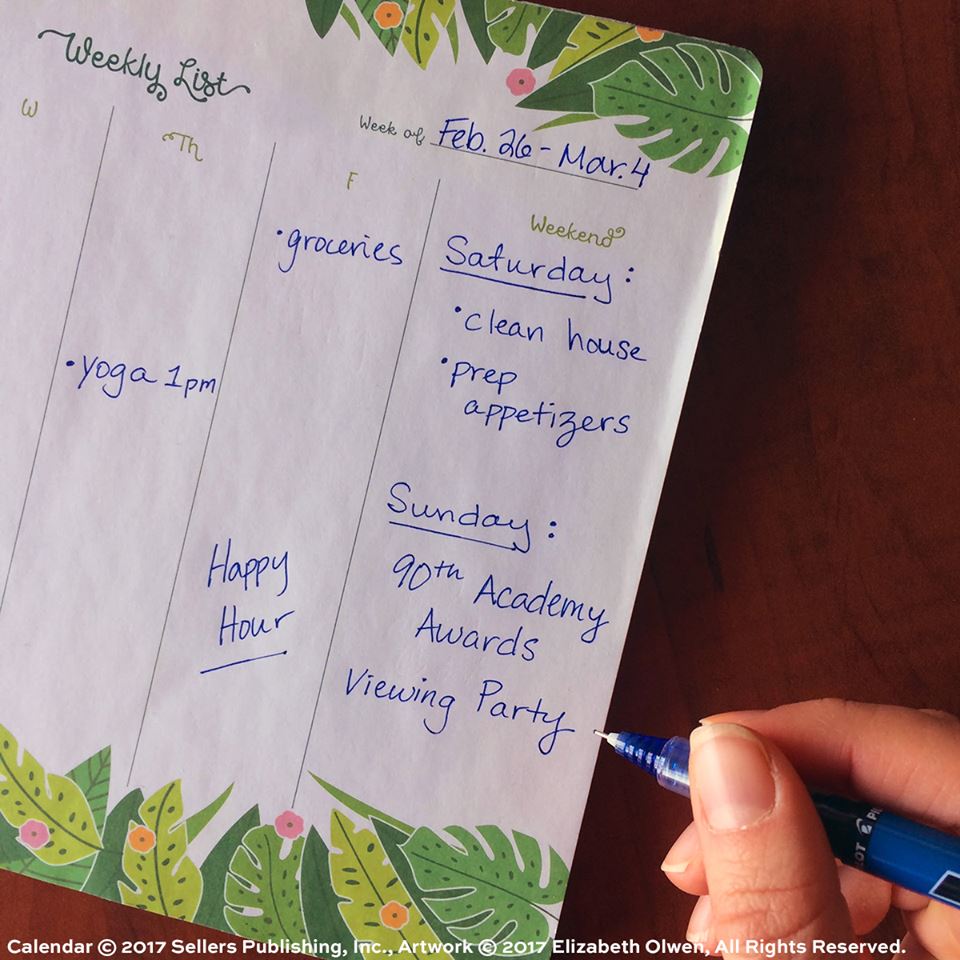 Weekly List
Week of Feb. 26 - Mar. 4
W
Th
• yoga 1pm
F
• groceries
Happy
Hour
Weekend
Saturday:
• clean house
• prep
appetizers
Sunday:
90th Academy
Awards
Viewing Party
Calendar © 2017 Sellers Publishing, Inc., Artwork © 2017 Elizabeth Olwen, All Rights Reserved.